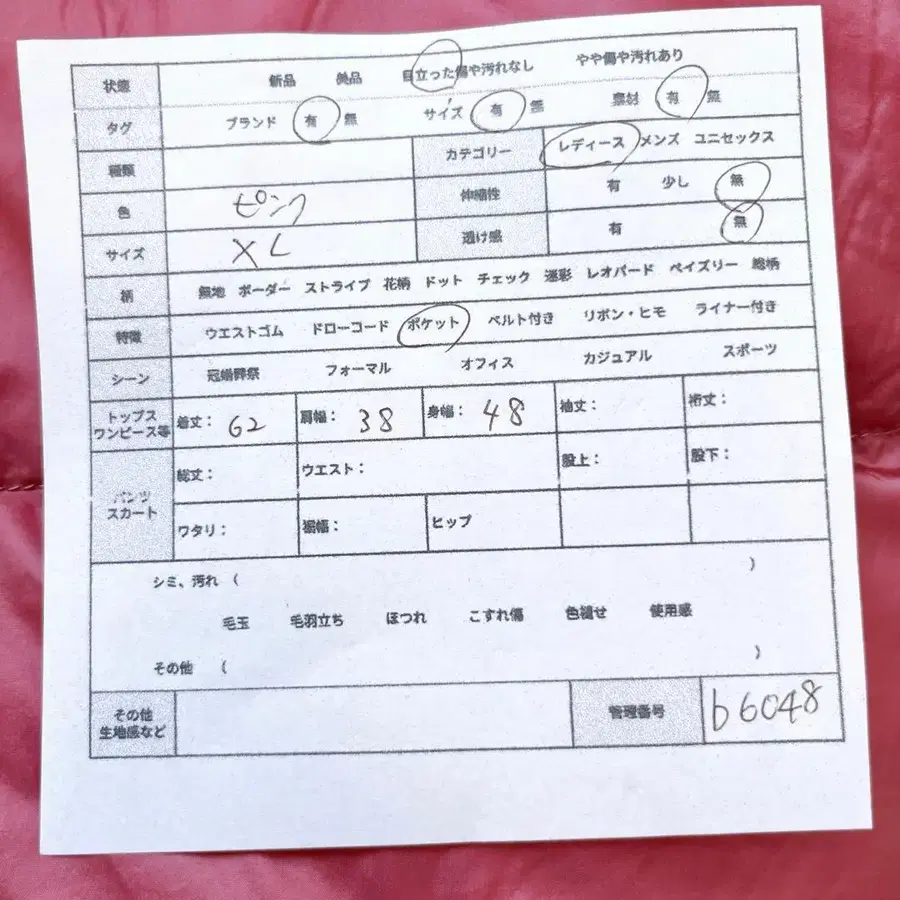 状態 新品 美品 目立った傷や汚れなし やや傷や汚れあり
タグ ブランド 有 無 サイズ 有 無 素材 有 無
種類 カテゴリー レディース メンズ ユニセックス
色 ピンク 伸縮性 有 少し 無
サイズ XL 透け感 有 無
柄 無地 ボーダー ストライプ 花柄 ドット チェック 迷彩 レオパード ペイズリー 総柄
特徴 ウエストゴム ドローコード ポケット ベルト付き リボン・ヒモ ライナー付き
シーン 冠婚葬祭 フォーマル オフィス カジュアル スポーツ
トップス
ワンピース等 着丈: 62 肩幅: 38 身幅: 48 袖丈: 裄丈:
パンツ
スカート 総丈: ウエスト: 股上: 股下:
ワタリ: 裾幅: ヒップ
シミ、汚れ ( )
毛玉 毛羽立ち ほつれ こすれ傷 色褪せ 使用感
その他 ( )
その他
生地感など 管理番号 b6048